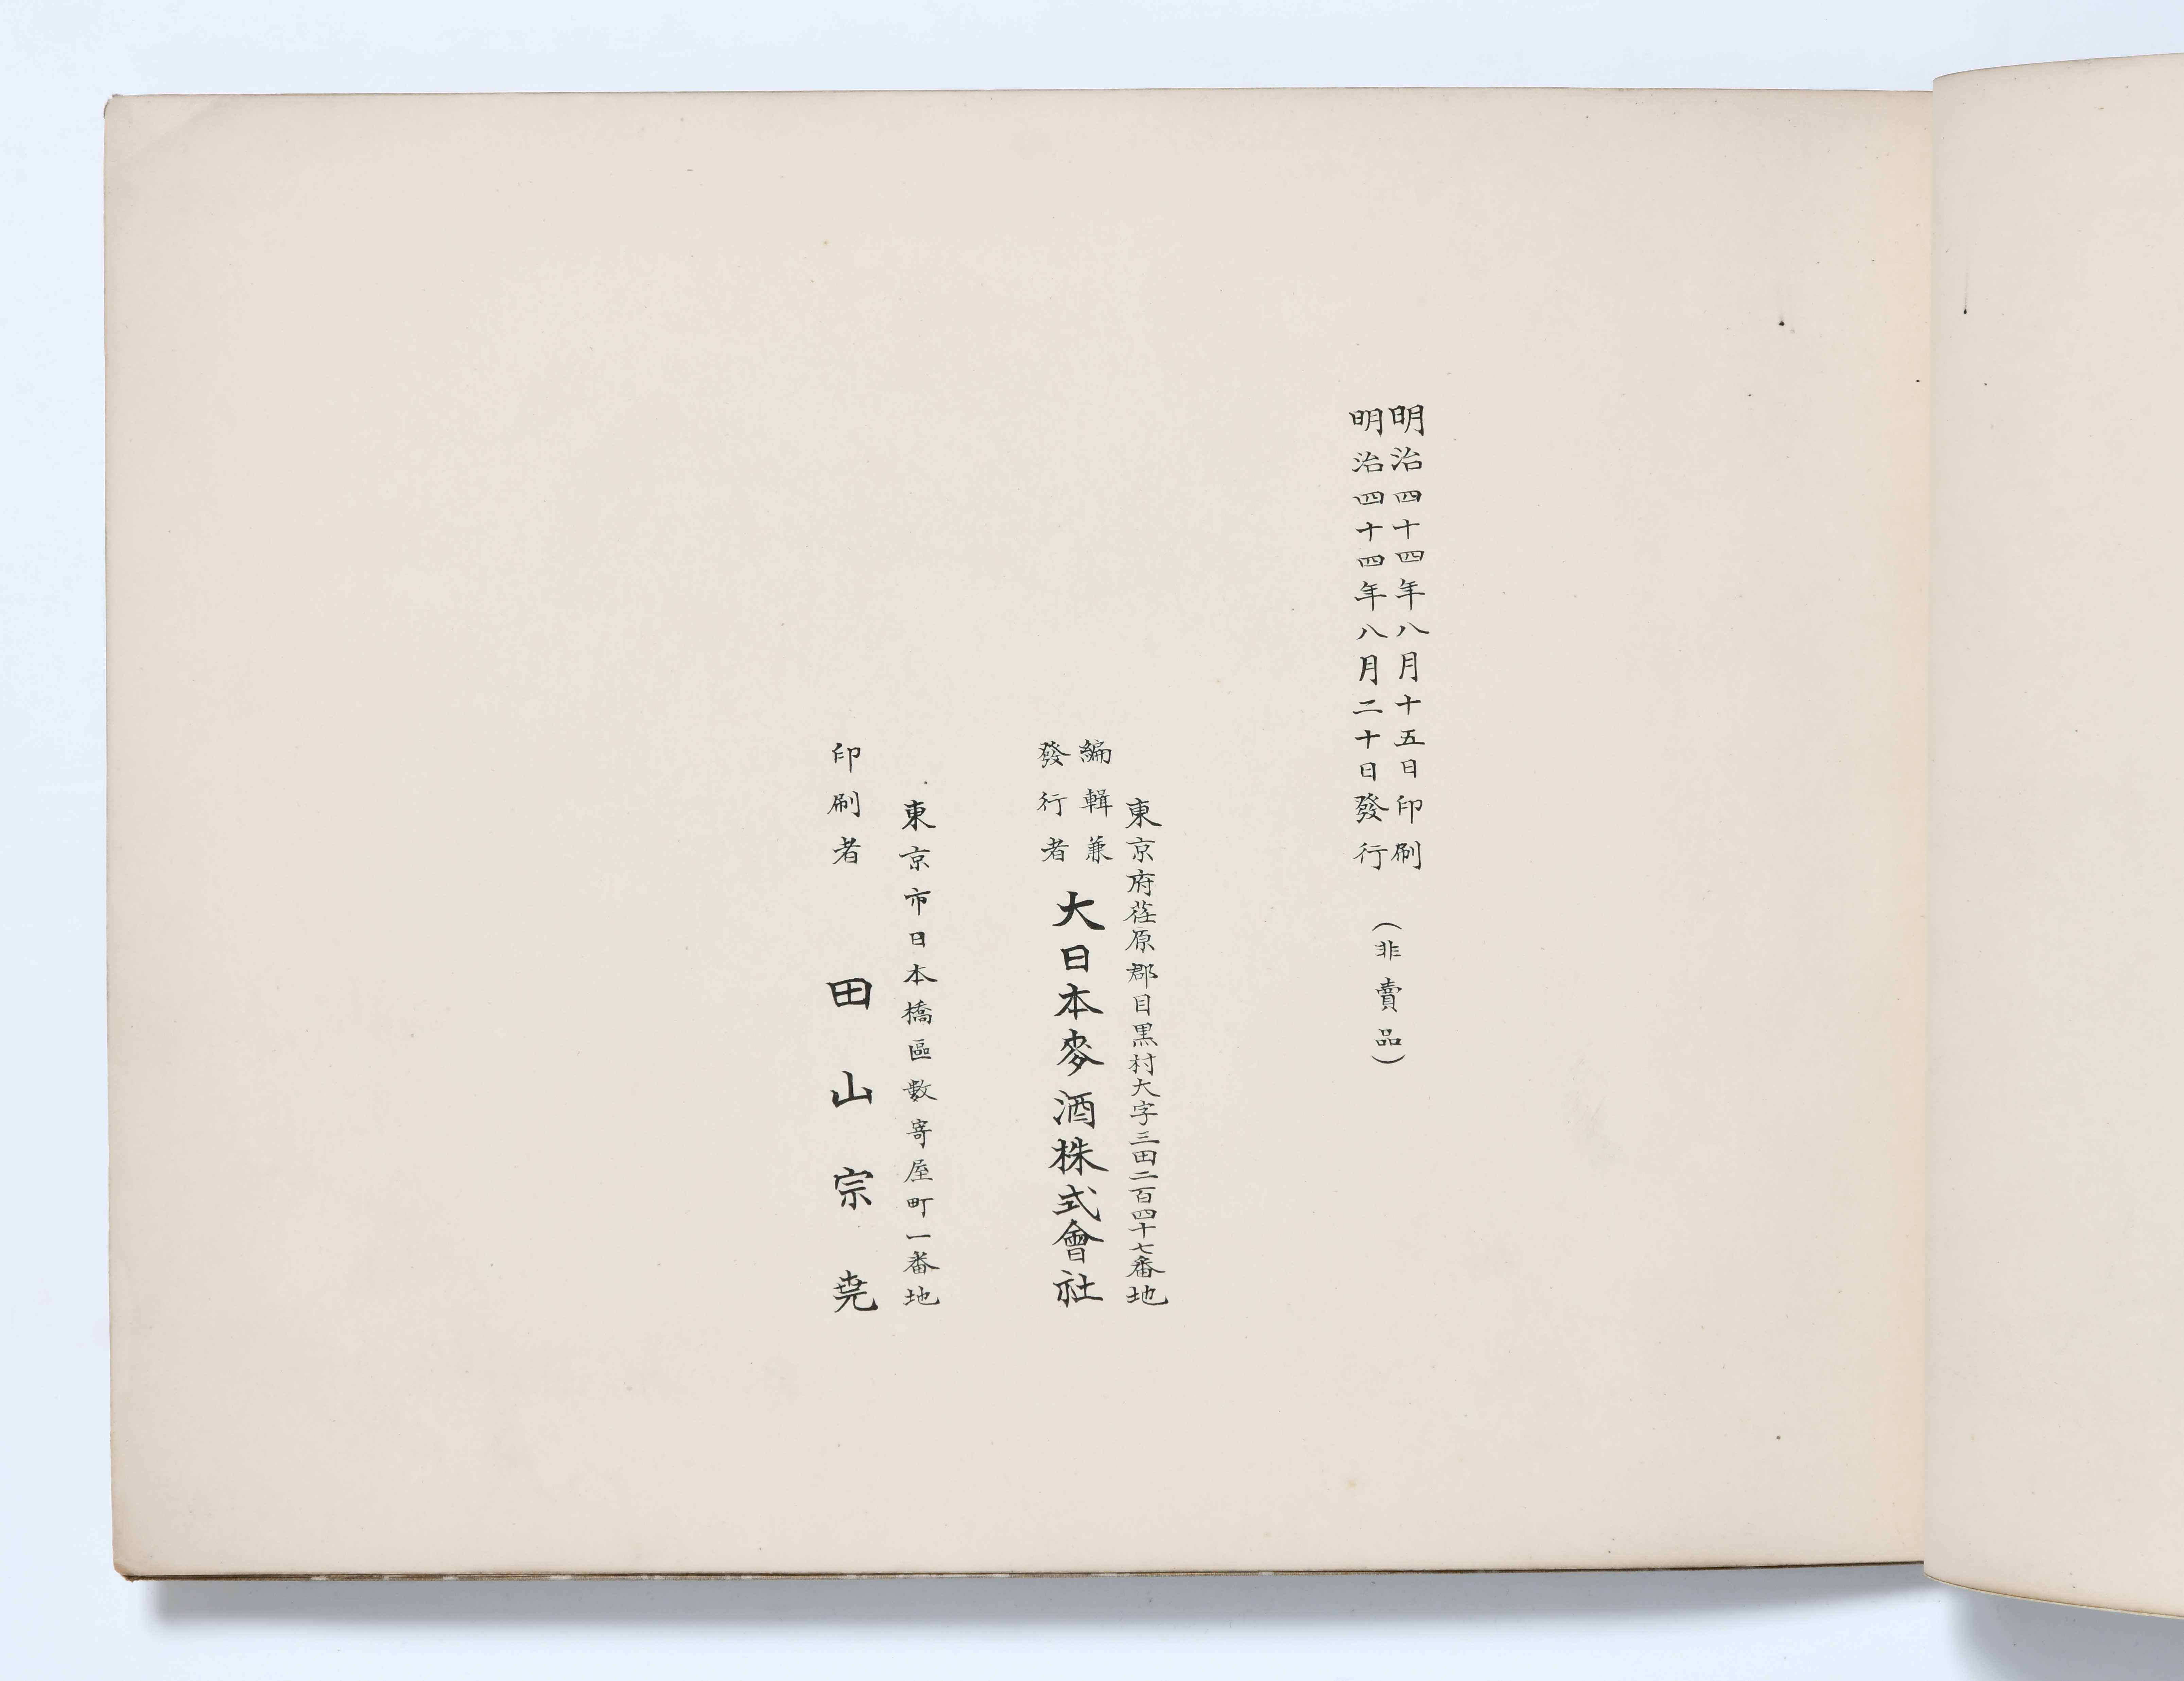 明治四十四年八月十五日印刷
明治四十四年八月二十日發行
(非賣品)
東京府荏原郡目黒村大字三田二百四十七番地
編輯兼
發行者
大日本麥酒株式會社
東京市日本橋區數寄屋町一番地
印刷者 田山宗尭